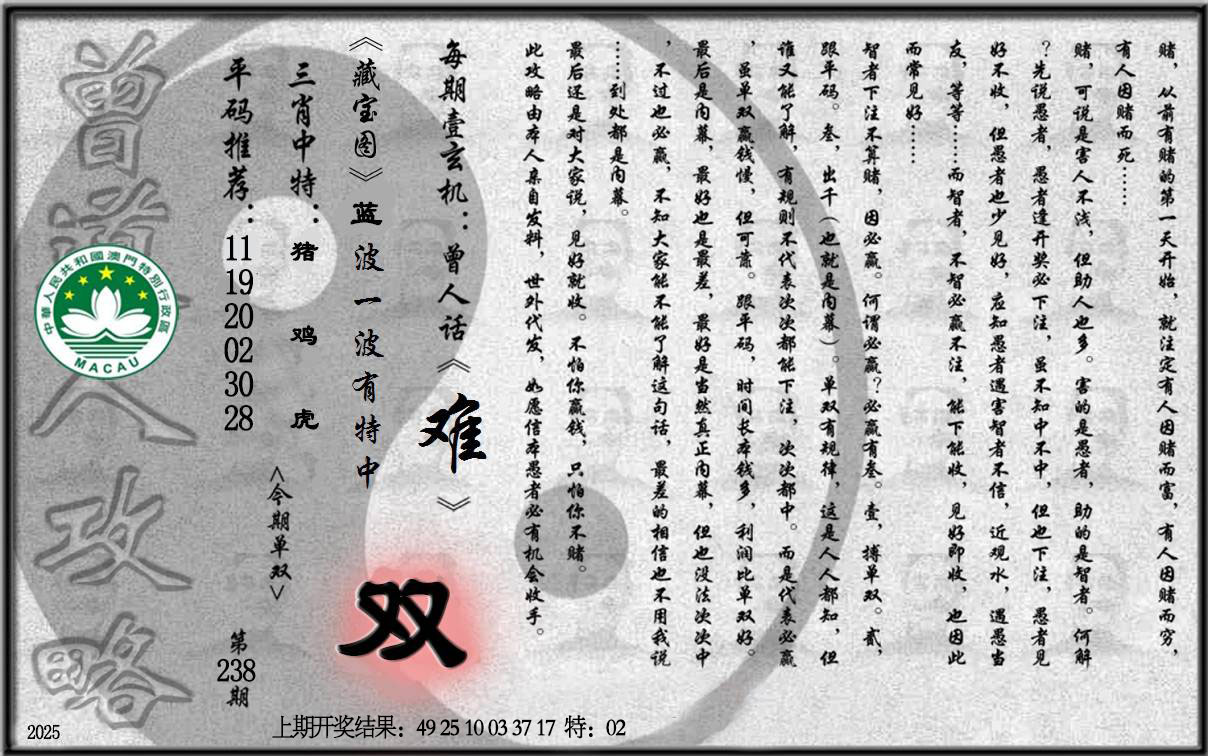 赌，从前有赌的第一天开始，就注定有人因赌而富，有人因赌而穷，
有人因赌而死……
赌，可说是害人不浅，但助人也多。害的是愚者，助的是智者。何解
？先说愚者，愚者逢开奖必下注，虽不知中不中，但也下注，愚者见
好不收，但愚者也少见好，应知愚者遇害智者不信，近观水，遇愚当
友，等等……而智者，不智必赢不注，能下能收，见好即收，也因此
而常见好……
智者下注不算赌，因必赢。何谓必赢？必赢有叁。壹，搏单双。贰，
跟平码。叁，出千（也就是内幕）。单双有规律，这是人人都知，但
谁又能了解，有规则不代表次次都能下注，次次都中。而是代表必赢
，虽单双赢钱慢，但可靠。跟平码，时间长本钱多，利润比单双好。
最后是内幕，最好也是最差，最好是当然真正内幕，但也没法次次中
，不过也必赢，不知大家能不能了解这句话，最差的相信也不用我说
……到处都是内幕。
最后还是对大家说，见好就收。不怕你赢钱，只怕你不赌。
此攻略由本人亲自发料，世外代发，如愿信本愚者必有机会收手。
每期壹玄机：曾人话《难》
《藏宝图》蓝波一波有特中
双
三肖中特：猪 鸡 虎
<今期单双>
平码推荐：11 19 20 02 30 28
第238期
曾道人攻略
中華人民共和國澳門特別行政區
MACAU
2025
上期开奖结果：49 25 10 03 37 17 特：02